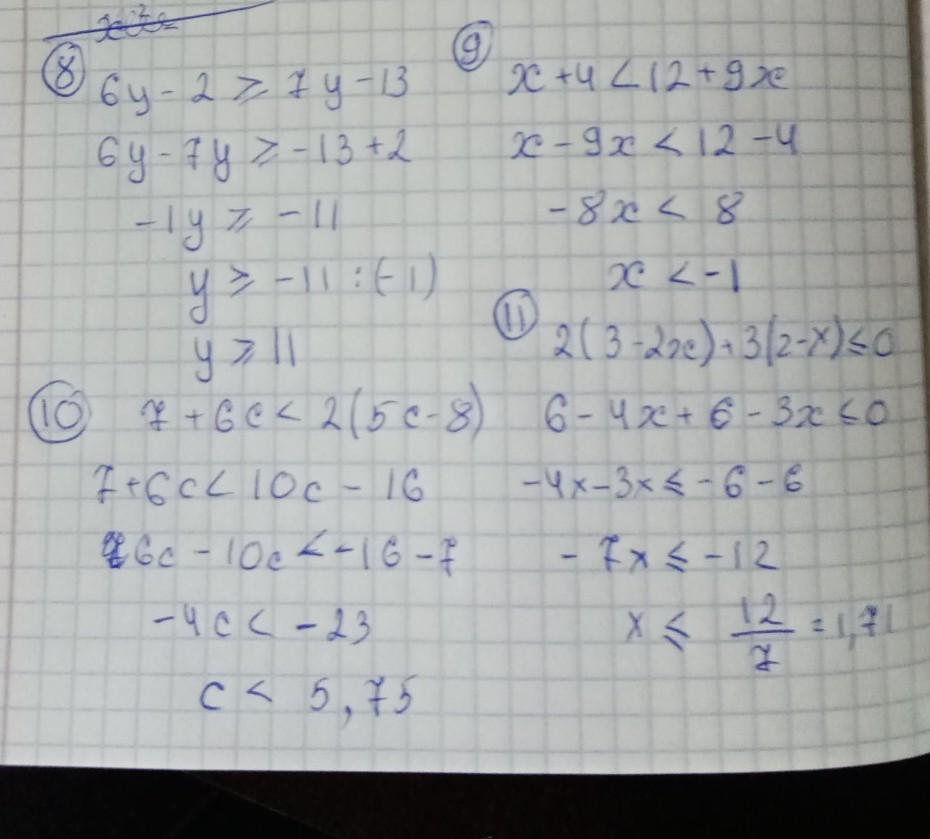 ⑧ 6y - 2 ⩾ 7y - 13
6y - 7y ⩾ -13 + 2
-1y ⩾ -11
y ⩾ -11 : (-1)
y ⩾ 11
⑨ x + 4 < 12 + 9x
x - 9x < 12 - 4
-8x < 8
x < -1
⑩ 7 + 6c < 2(5c - 8)
7 + 6c < 10c - 16
6c - 10c < -16 - 7
-4c < -23
c < 5,75
⑪ 2(3 - 2x) + 3(2 - x) ≤ 0
6 - 4x + 6 - 3x ≤ 0
-4x - 3x ≤ -6 - 6
-7x ≤ -12
x ≤ 12/7 = 1,71